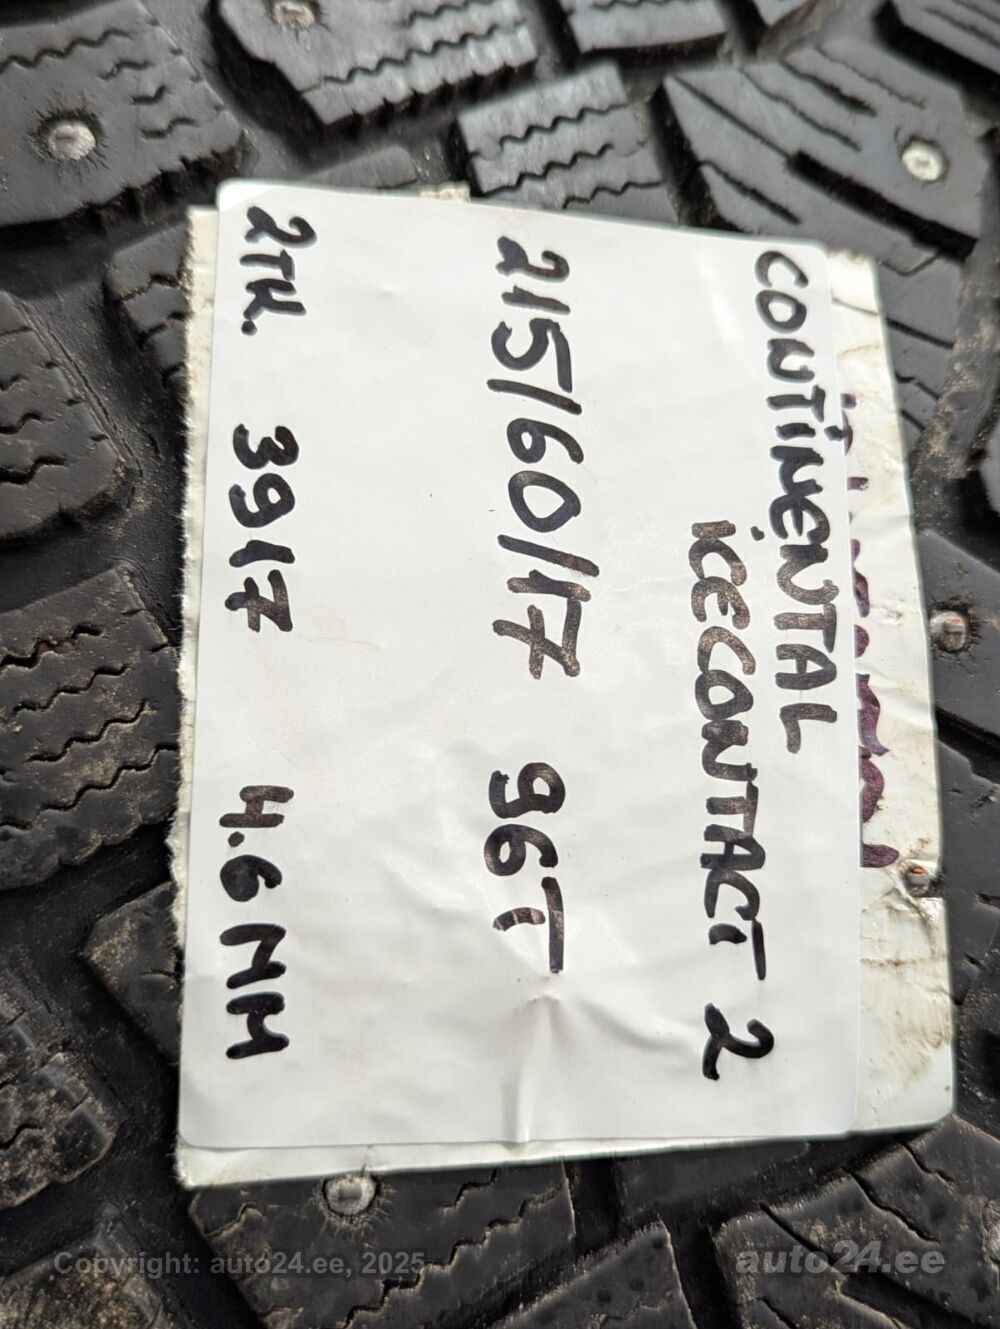 CONTINENTAL
ICECONTACT 2
215/60/17 96T
2TK. 3917 4.6MM
Copyright: auto24.ee, 2025
auto24.ee